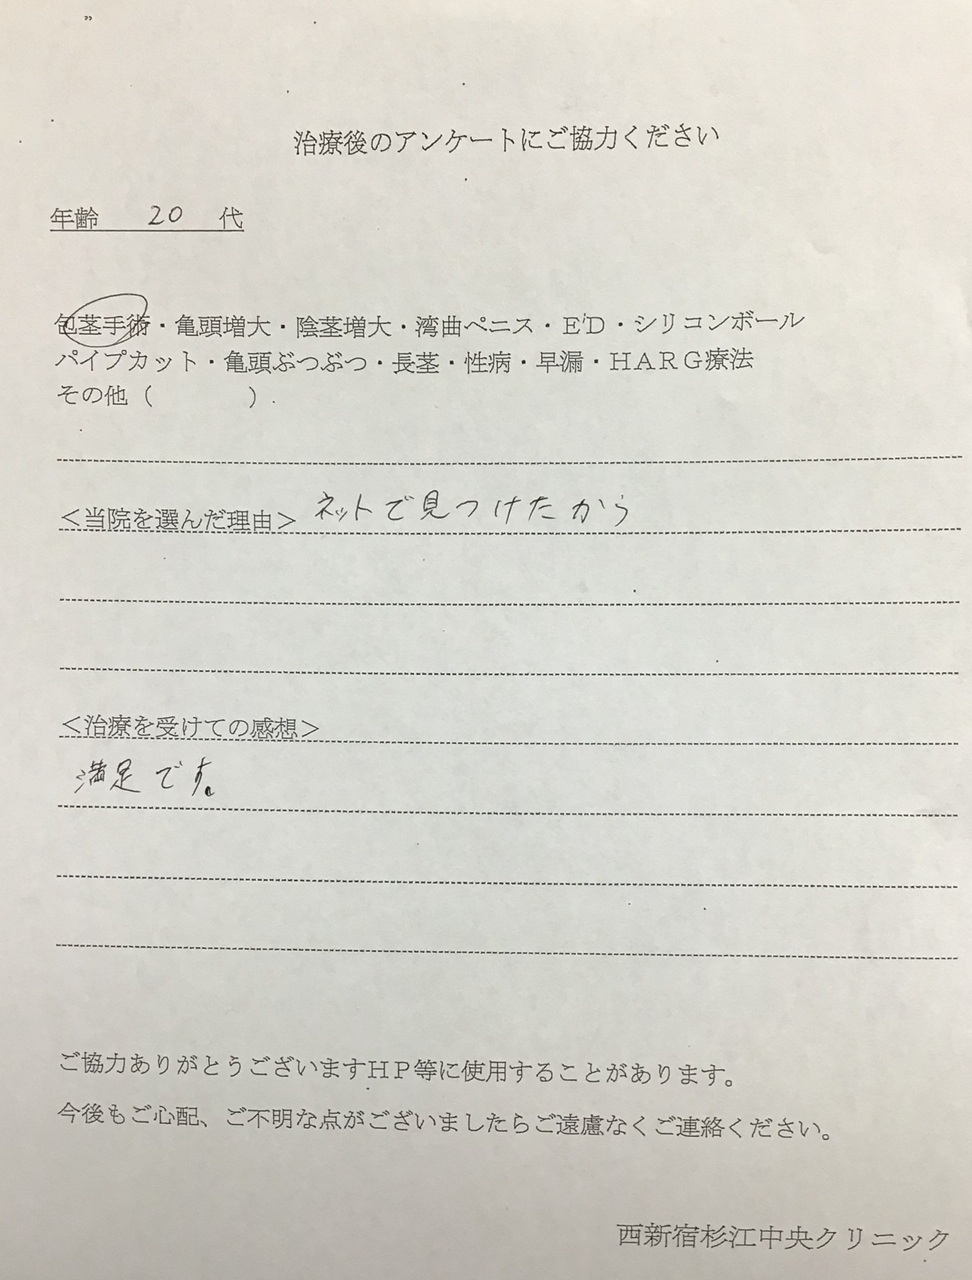 治療後のアンケートにご協力ください
年齢 20 代
包茎手術・亀頭増大・陰茎増大・湾曲ペニス・ED・シリコンボール
パイプカット・亀頭ぶつぶつ・長茎・性病・早漏・HARG療法
その他（ ）
＜当院を選んだ理由＞ ネットで見つけたから
＜治療を受けての感想＞
満足です。
ご協力ありがとうございますHP等に使用することがあります。
今後もご心配、ご不明な点がございましたらご遠慮なくご連絡ください。
西新宿杉江中央クリニック